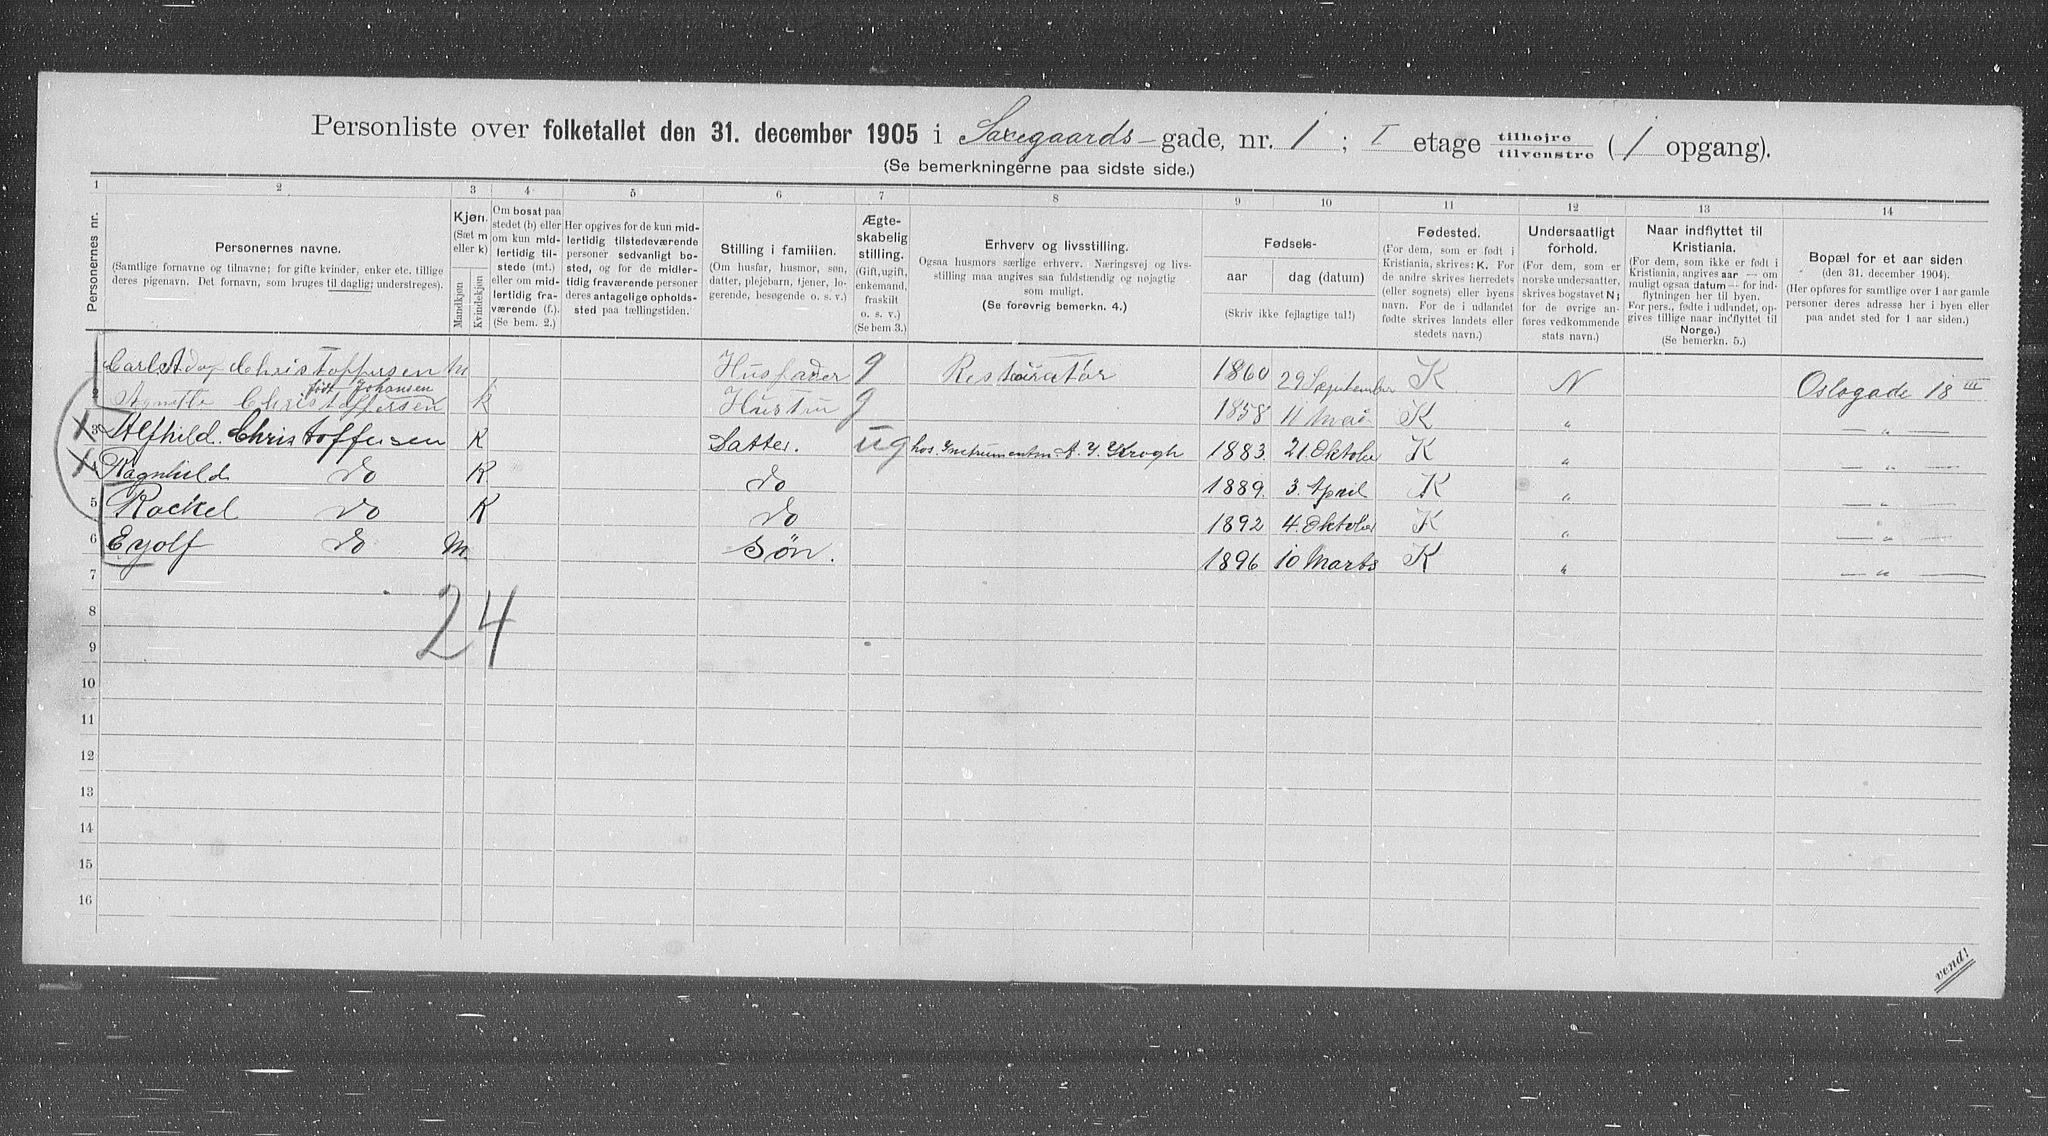 Personliste over folketallet den 31. december 1905 i Saxegaards-gade, nr. 1; I etage tilhøjre tilvenstre (1 opgang).
(Se bemerkningerne paa sidste side.)
1 2 3 4 5 6 7 8 9 10 11 12 13 14
Personernes nr.
Personernes navne.
(Samtlige fornavne og tilnavne; for gifte kvinder, enker etc. tillige
deres pigenavn. Det fornavn, som bruges til daglig; understreges).
Kjøn.
(Sæt m
eller k)
Mandkjøn
Kvindekjøn
Om bosat paa
stedet (b) eller
om kun mid-
lertidig til-
stede (mt.)
eller om mid-
lertidig fra-
værende (f.).
(Se bem. 2.)
Her opgives for de kun mid-
lertidig tilstedeværende
personer sedvanligt bo-
sted, og for de midler-
tidig fraværende personer
deres antagelige opholds-
sted paa tællingstiden.
Stilling i familien.
(Om husfar, husmor, søn,
datter, plejebarn, tjener, lo-
gerende, besøgende o. s. v.)
Ægte-
skabelig
stilling.
(Gift, ugift,
enkemand,
fraskilt
o. s. v.)
(Se bem 3.)
Erhverv og livsstilling.
Ogsaa husmors særlige erhverv. Næringsvej og livs-
stilling maa angives saa fuldstændig og nøjagtig
som muligt.
(Se forøvrig bemerkn. 4.)
Fødsels-
aar dag (datum)
(Skriv ikke fejlagtige tal!)
Fødested.
(For dem, som er født i
Kristiania, skrives: K. For
de andre skrives herredets
(eller sognets) eller byens
navn. For de i udlandet
fødte skrives landets eller
stedets navn.)
Undersaatligt
forhold.
(For dem, som er
norske undersaatter,
skrives bogstavet N;
for de øvrige an-
føres vedkommende
stats navn.)
Naar indflyttet til
Kristiania.
(For dem, som ikke er født i
Kristiania, angives aar — om
muligt ogsaa datum — for ind-
flytningen her til byen.
For pers., født i udlandet, op-
gives tillige naar indflyttet til
Norge.)
(Se bemerkn. 5.)
Bopæl for et aar siden
(den 31. december 1904).
(Her opføres for samtlige over 1 aar gamle
personer deres adresse her i byen eller
paa andet sted for 1 aar siden.)
Carl Adof Christoffersen m Husfader g Restauratør 1860 29 September K N Oslogade 18 III
født Johansen
2 Agnette Christoffersen k Hustru g 1858 11 Mai K " — " —
3 Alfhild Christoffersen K Datter. ug hos Instrumentm. A. Y. Krogh 1883. 21 Oktober K " — " —
4 Ragnhild do K do 1889. 3. April K " — " —
5 Rackel do K do 1892 4. Oktober K " — " —
6 Eyolf do M. Søn. 1896 10 Marts K " — " —
7
24
8
9
10
11
12
13
14
15
16
vend!